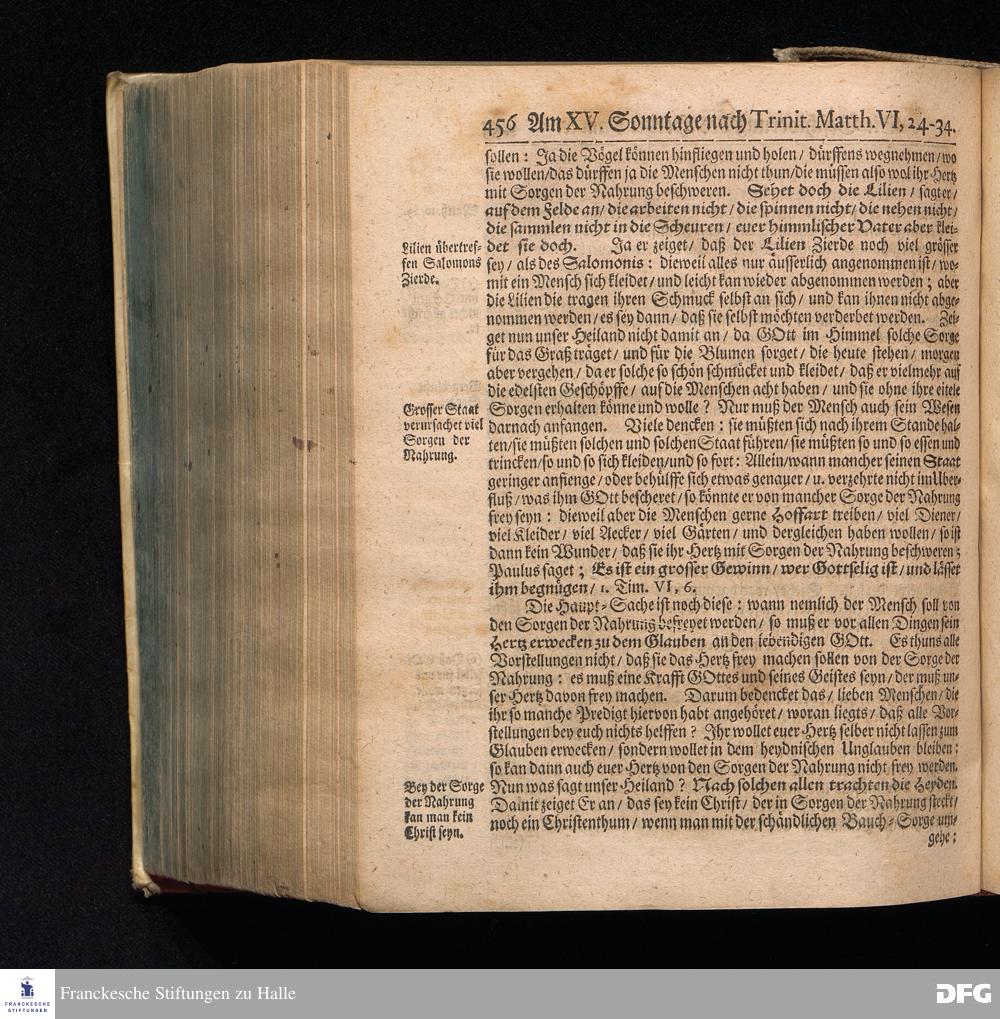 456 Am XV. Sonntage nach Trinit. Matth. VI, 24-34.
sollen: Ja die Vögel können hinfliegen und holen/ dürffens wegnehmen/ wo
sie wollen/ das dürffen ja die Menschen nicht thun/ die müssen also wol ihr Hertz
mit Sorgen der Nahrung beschweren. Sehet doch die Lilien/ sagt er/
auf dem Felde an/ die arbeiten nicht/ die spinnen nicht/ die nehen nicht/
die sammlen nicht in die Scheuren/ euer himmlischer Vater aber klei-
det sie doch. Ja er zeiget/ daß der Lilien Zierde noch viel grösser
sey/ als des Salomonis: dieweil alles nur äusserlich angenommen ist/ wo-
mit ein Mensch sich kleidet/ und leicht kan wieder abgenommen werden; aber
die Lilien die tragen ihren Schmuck selbst an sich/ und kan ihnen nicht abge-
nommen werden/ es sey dann/ daß sie selbst möchten verderbet werden. Zei-
get nun unser Heiland nicht damit an/ da GOtt im Himmel solche Sorge
für das Graß träget/ und für die Blumen sorget/ die heute stehen/ morgen
aber vergehen/ da er solche so schön schmücket und kleidet/ daß er vielmehr auf
die edelsten Geschöpffe/ auf die Menschen acht haben/ und sie ohne ihre eitele
Sorgen erhalten könne und wolle? Nur muß der Mensch auch sein Wesen
darnach anfangen. Viele dencken: sie müßten sich nach ihrem Stande hal-
ten/ sie müßten solchen und solchen Staat führen/ sie müßten so und so essen und
trincken/ so und so sich kleiden/ und so fort: Allein/ wann mancher seinen Staat
geringer anfienge/ oder behülffe sich etwas genauer/ u. verzehrte nicht im Uber-
fluß/ was ihm GOtt bescheret/ so könnte er von mancher Sorge der Nahrung
frey seyn: dieweil aber die Menschen gerne Hoffart treiben/ viel Diener/
viel Kleider/ viel Aecker/ viel Gärten/ und dergleichen haben wollen/ so ist
dann kein Wunder/ daß sie ihr Hertz mit Sorgen der Nahrung beschweren;
Paulus saget; Es ist ein grosser Gewinn/ wer Gottselig ist/ und lässet
ihm begnügen/ 1. Tim. VI, 6.
Die Haupt-Sache ist noch diese: wann nemlich der Mensch soll von
den Sorgen der Nahrung befreyet werden/ so muß er vor allen Dingen sein
Hertz erwecken zu dem Glauben an den lebendigen GOtt. Es thuns alle
Vorstellungen nicht/ daß sie das Hertz frey machen sollen von der Sorge der
Nahrung: es muß eine Krafft GOttes und seines Geistes seyn/ der muß un-
ser Hertz davon frey machen. Darum bedencket das/ lieben Menschen/ die
ihr so manche Predigt hiervon habt angehöret/ woran liegts/ daß alle Vor-
stellungen bey euch nichts helffen? Ihr wollet euer Hertz selber nicht lassen zum
Glauben erwecken/ sondern wollet in dem heydnischen Unglauben bleiben:
so kan dann auch euer Hertz von den Sorgen der Nahrung nicht frey werden.
Nun was sagt unser Heiland? Nach solchen allen trachten die Heyden.
Damit zeiget Er an/ das sey kein Christ/ der in Sorgen der Nahrung steckt/
noch ein Christenthum/ wenn man mit der schändlichen Bauch-Sorge um-
gehe;
Lilien übertref-
fen Salomons
Zierde.
Grosser Staat
verursachet viel
Sorgen der
Nahrung.
Bey der Sorge
der Nahrung
kan man kein
Christ seyn.
FRANCKESCHE
STIFTUNGEN
Franckesche Stiftungen zu Halle
DFG